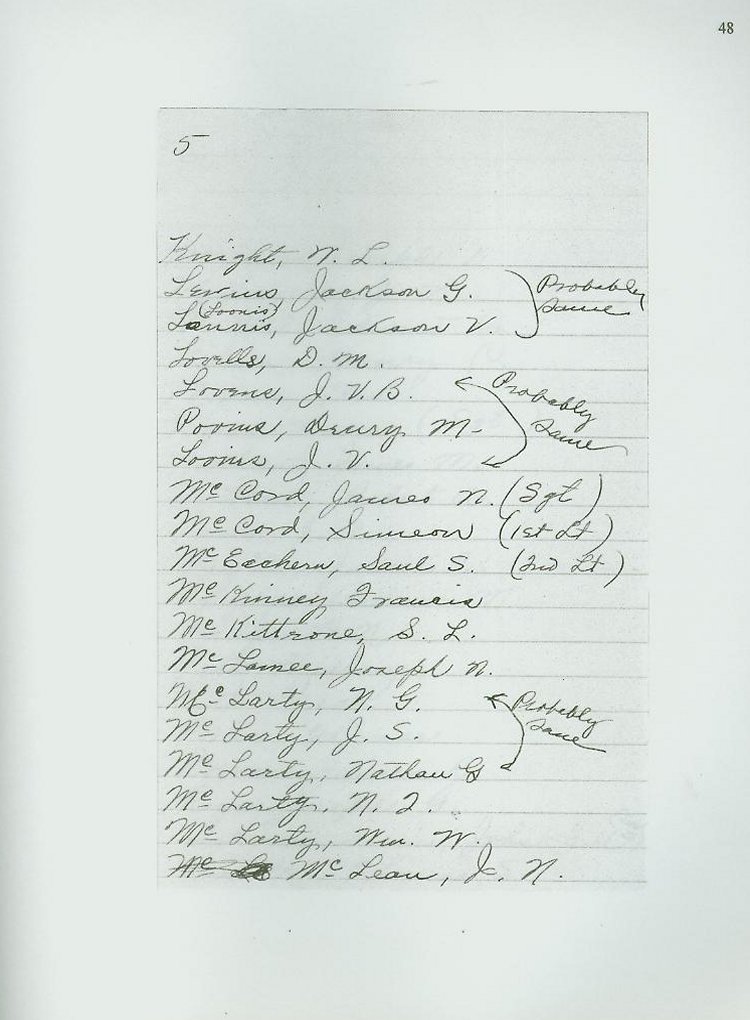 48
5
Knight, W. L.
Lenius, Jackson G. Probably
same
(Loonis)
Lannis, Jackson V.
Lovells, D. M.
Lovens, J. V. B. Probably
same
Povins, Drury M-
Looms, J. V.
Mc Cord, James N. (Sgt)
Mc Cord, Simeon (1st Lt)
Mc Eachern, Saul S. (2nd Lt)
Mc Kinney Francis
Mc Kittrone, S. L.
Mc Lamee, Joseph N.
Mc Larty, N. G. Probably
same
Mc Larty, J. S.
Mc Larty, Nathan G
Mc Larty, N. J.
Mc Larty, Wm. W.
Mc Lean, J. N.